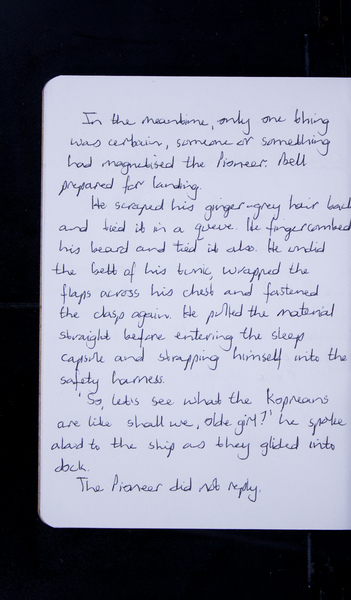 In the meantime, only one thing
was certain, someone or something
had magnetised the Pioneer. Bell
prepared for landing.
He scraped his ginger-grey hair back
and tied it in a queue. He fingercombed
his beard and tied it also. He undid
the belt of his tunic, wrapped the
flaps across his chest and fastened
the clasp again. He pulled the material
straight before entering the sleep
capsule and strapping himself into the
safety harness.
'So, let's see what the Kopreans
are like shall we, olde girl?' he spoke
aloud to the ship as they glided into
dock.
The Pioneer did not reply.